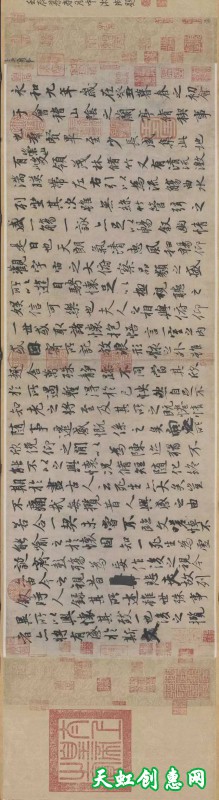 永和九年歲在癸丑暮春之初會
于會稽山陰之蘭亭脩稧事
也羣賢畢至少長咸集此地
有崇山峻領茂林脩竹又有清流激
湍暎帶左右引以為流觴曲水
列坐其次雖無絲竹管弦之
盛一觴一詠亦足以暢敘幽情
是日也天朗氣清惠風和暢仰
觀宇宙之大俯察品類之盛
所以遊目騁懷足以極視聽之
娛信可樂也夫人之相與俯仰
一世或取諸懷抱悟言一室之內
或因寄所託放浪形骸之外雖
趣舍萬殊靜躁不同當其欣
於所遇暫得於己怏然自足不
知老之將至及其所之既惓情
隨事遷感慨係之矣向之所
欣俛仰之間以為陳迹猶不
能不以之興懷況脩短隨化終
期於盡古人云死生亦大矣豈
不痛哉每攬昔人興感之由
若合一契未嘗不臨文嗟悼不
能喻之於懷固知一死生為虛
誕齊彭殤為妄作後之視今
亦由今之視昔悲夫故列
敘時人錄其所述雖世殊事
異所以興懷其致一也後之攬
者亦將有感於斯文
天虹创惠网